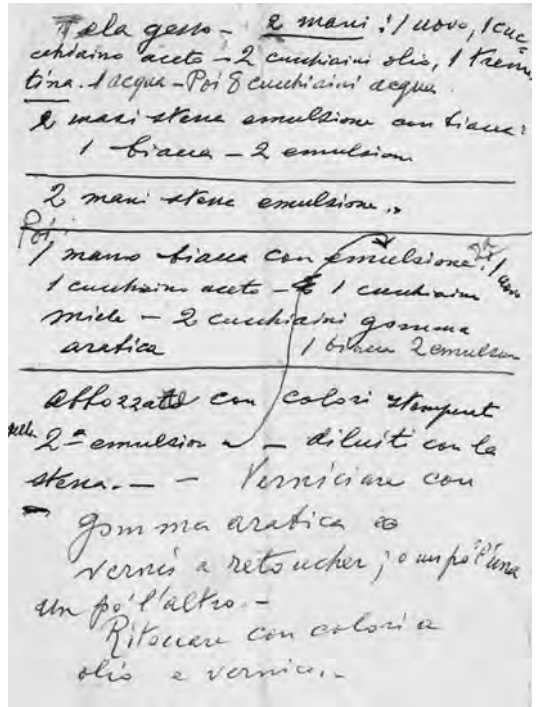 Tela gesso — 2 mani: 1 uovo, 1 cuc-
chiaino aceto — 2 cucchiaini olio, 1 tremen
tina. 1 acqua — Poi 8 cucchiaini acqua.
2 mani stessa emulsione con biacca:
1 biacca — 2 emulsione
2 mani stessa emulsione
Poi:
1 mano biacca con emulsione 2ª: 1 uovo
1 cucchiaino aceto — 1 cucchiaino
miele — 2 cucchiaini gomma
arabica 1 biacca 2 emulsion
abbozzare con colori stemperat
nella 2ª emulsione — diluiti con la
stessa. — — Verniciare con
gomma arabica o
vernis a retoucher; o un pó l'una
un pó l'altro. —
Ritoccare con colori a
olio e vernice. —